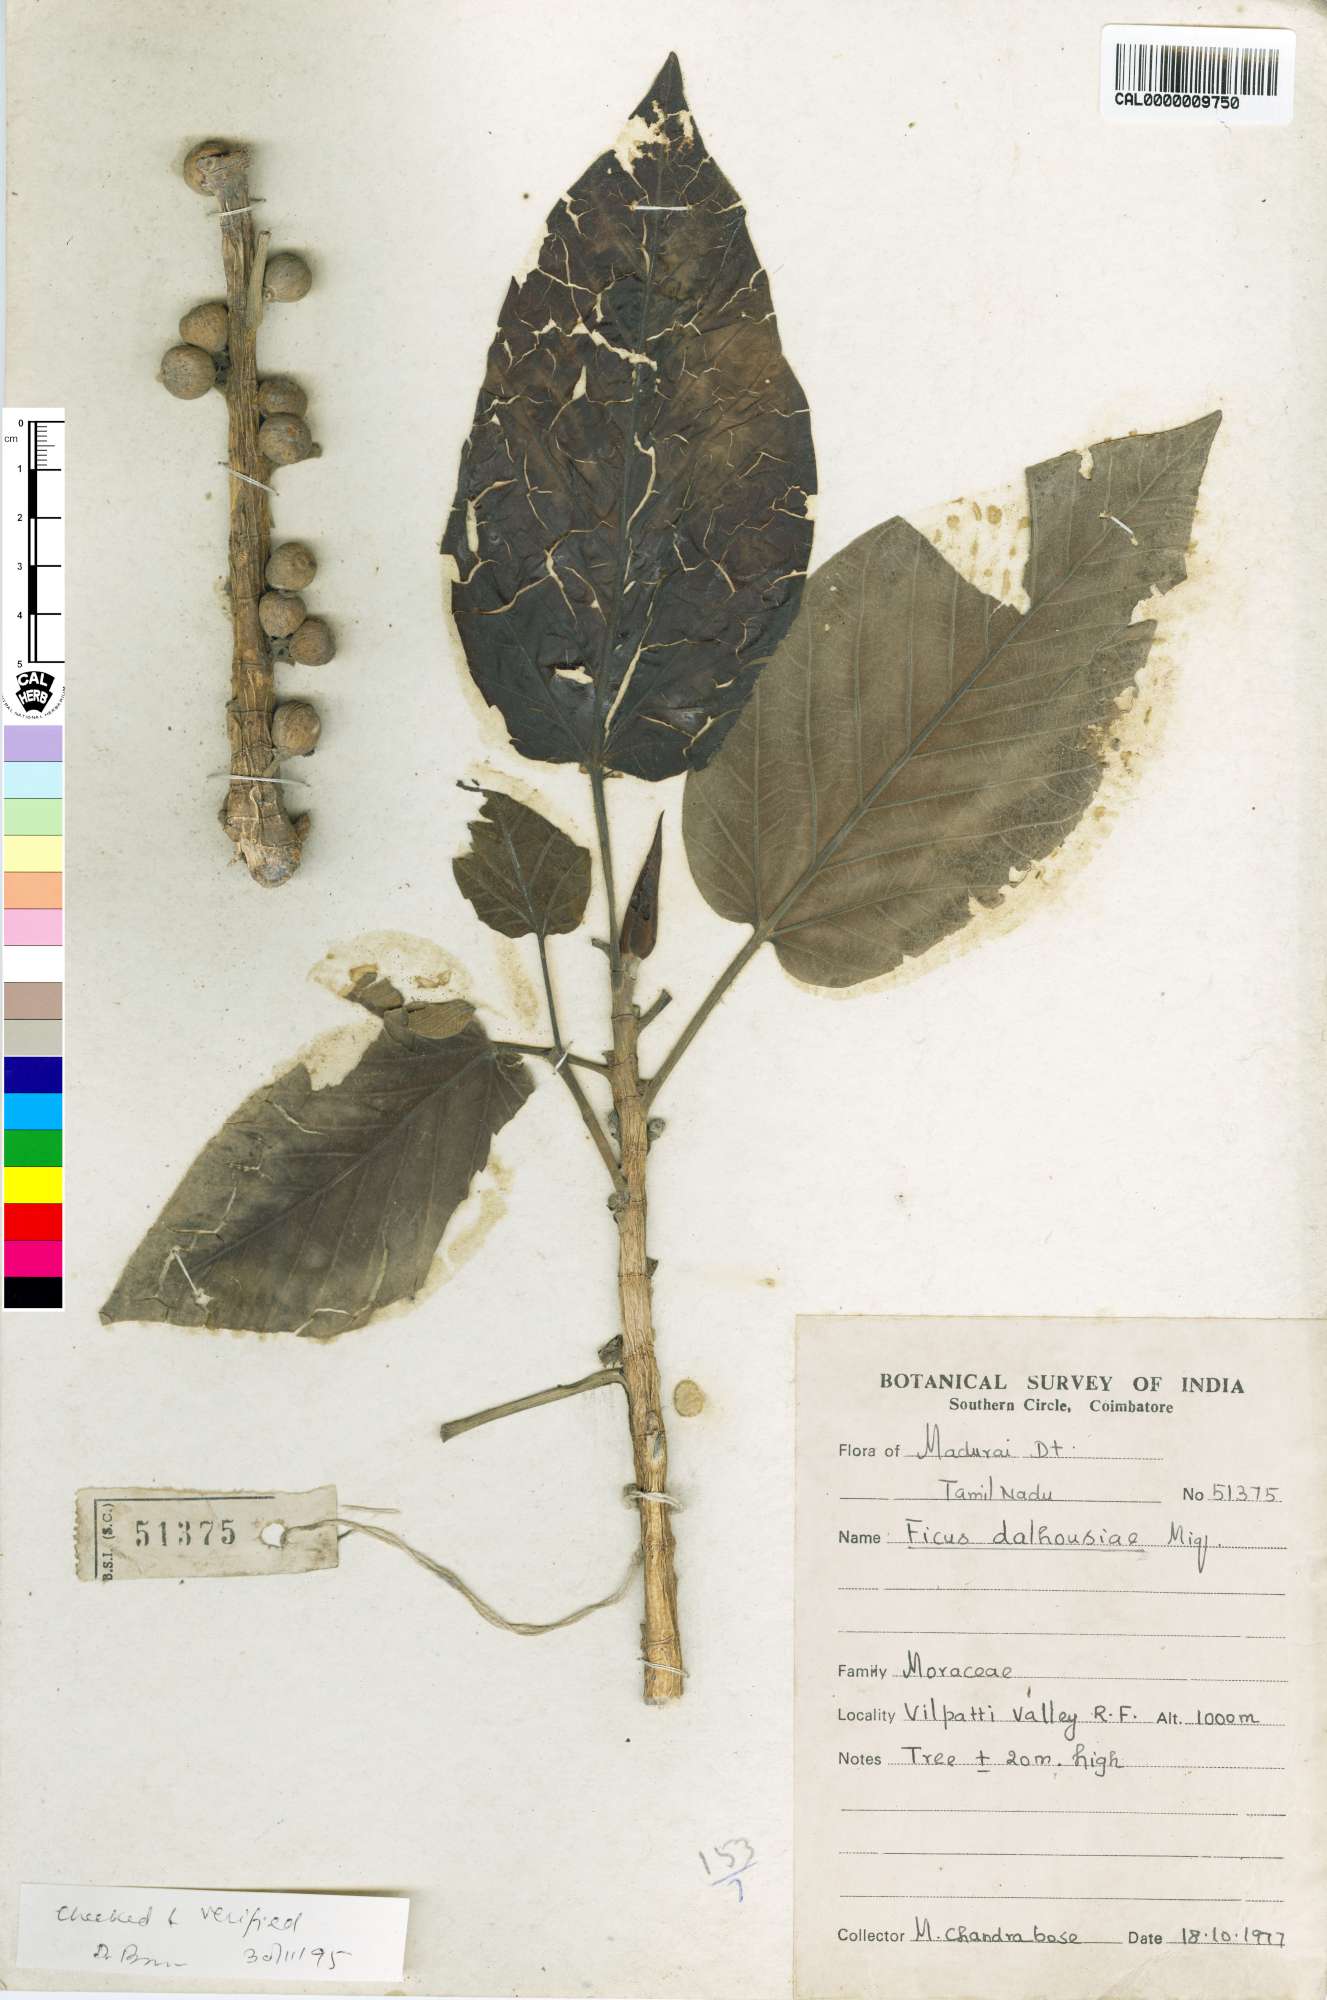 CAL0000009750
0
cm
1
2
3
4
5
CAL
HERB
BOTANICAL SURVEY OF INDIA
Southern Circle, Coimbatore
Flora of Madurai Dt.
Tamil Nadu No 51375
Name Ficus dalhousiae Miq.
Family Moraceae
Locality Vilpatti Valley R.F. Alt. 1000m
Notes Tree ± 20m. high
Collector M. Chandrabose Date 18.10.1977
B.S.I. (S.C.)
51375
153/7
Checked & verified
30/11/95